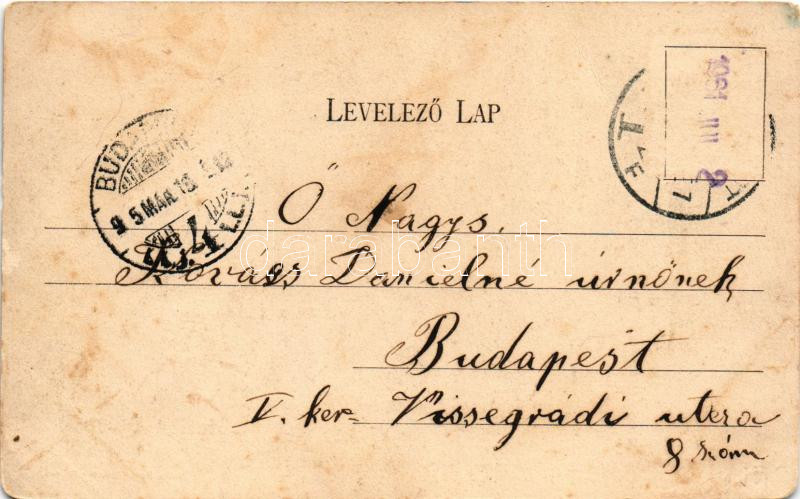 LEVELEZŐ LAP
BUDAP
Ő Nagys.
Kovács Dánielné úrnőnek
Budapest
V. ker. Vissegrádi utcza
8 szám
darabanth